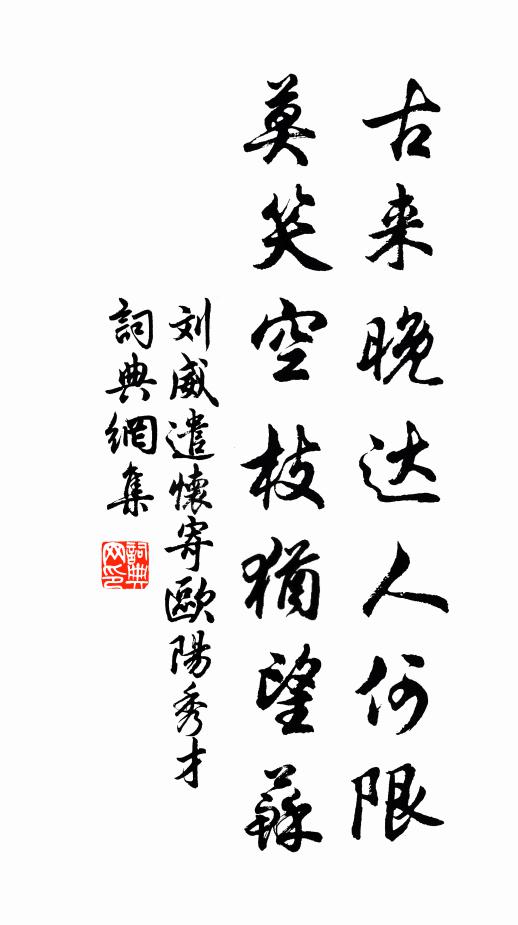 古来晚达人何限
莫笑空枝猶望蘇
刘威遣懷寄歐陽秀才
詞典網集
詞典网印